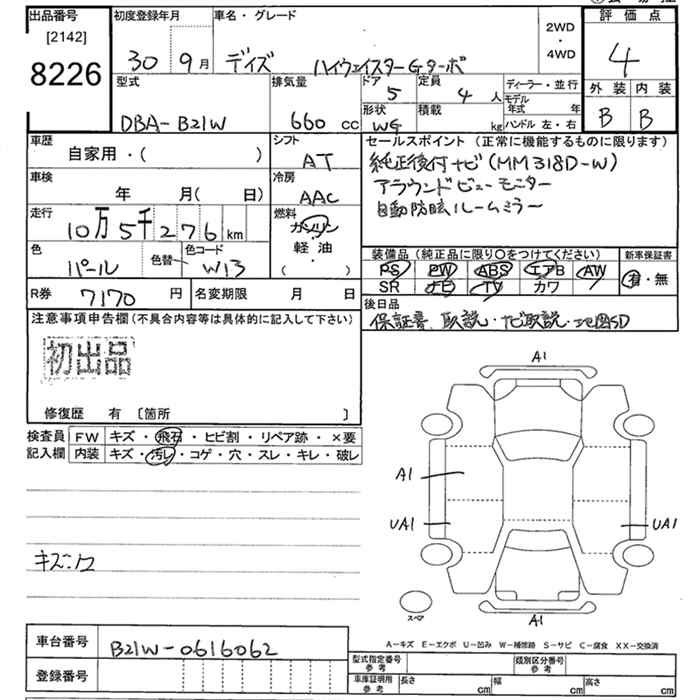 出品番号
[2142]
8226
初度登録年月
30 9月
車名・グレード
デイズ ハイウェイスターGターボ
2WD
・
4WD
評価点
4
外装 内装
B B
型式
DBA-B21W
排気量
660 cc
ドア
5
定員
4 人
形状
WG
積載
kg
ディーラー・並行
モデル年式 年
ハンドル 左・右
車歴
自家用・( )
シフト
AT
車検
年 月( 日)
冷房
AAC
走行
10万5千276km
燃料
ガソリン
軽油
( )
色
パール
色替
色コード
W13
R券 7170 円
名変期限 月 日
セールスポイント (正常に機能するものに限ります)
純正後付ナビ(MM318D-W)
アラウンドビューモニター
自動防眩ルームミラー
装備品 (純正品に限り○をつけてください)
PS PW ABS エアB AW
SR ナビ TV カワ
新車保証書
有・無
後日品
保証書、取説・ナビ取説・地図SD
注意事項申告欄(不具合内容等は具体的に記入して下さい)
初出品
修復歴 有 〔箇所 〕
検査員
記入欄
FW キズ・飛石・ヒビ割・リペア跡・×要
内装 キズ・汚レ・コゲ・穴・スレ・キレ・破レ
A1
A1
UA1
UA1
キズニク
スペア
A1
A-キズ E-エクボ U-凹み W-補修跡 S-サビ C-腐食 XX-交換済
車台番号 B21W-0616062
登録番号
型式指定番号
参考
類別区分番号
参考
車庫証明用
参考
長さ cm
幅 cm
高さ cm